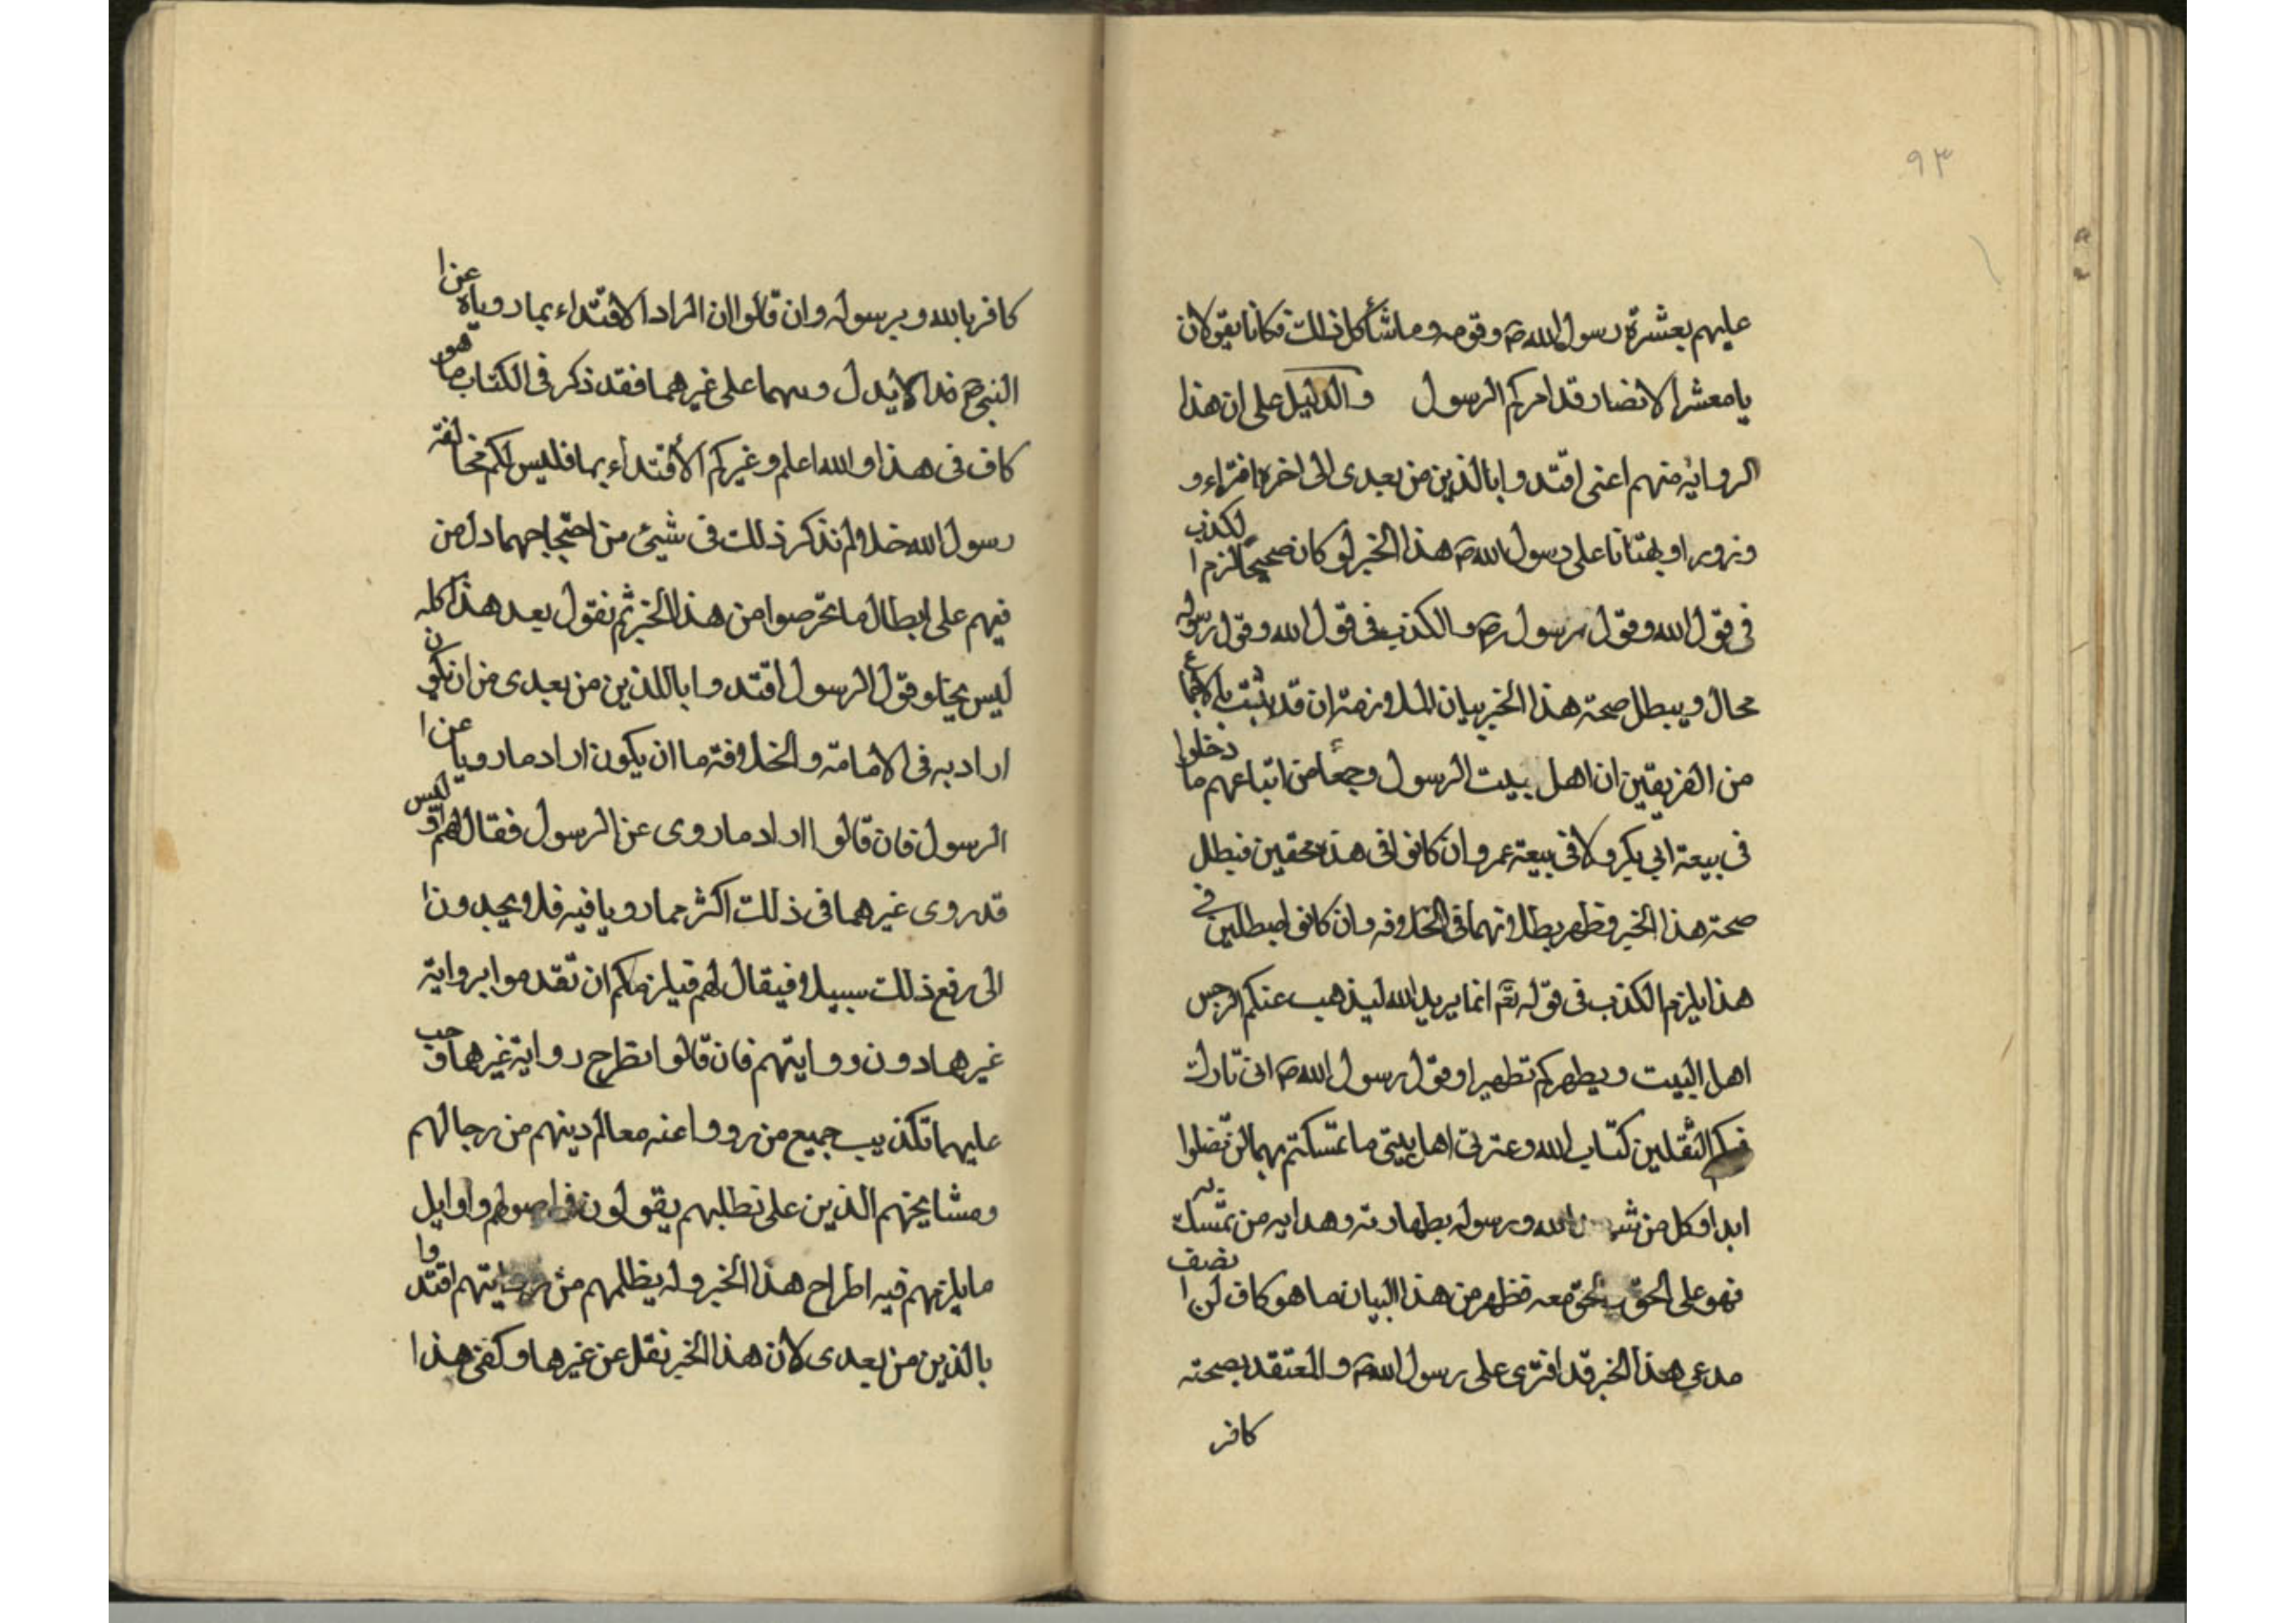 ٩٣
عليهم بعشرة رسول الله ص وقومه وما شأكل ذلك فكانا يقولان
يا معشر الانصار قد امركم الرسول والدليل على ان هذا
الرواية منهم اعنى اقتدوا بالذين من بعدى الى اخره افتراء و
وزورا وبهتانا على رسول الله ص هذا الخبر لو كان صحيحا لزم الكذب
فى قول الله وقول رسول ص والكذب فى قول الله وقول رسوله
محال ويبطل صحة هذا الخبر بيان الملازمة ان قد ثبت بالاجماع
من الفريقين ان اهل بيت الرسول وجمعا من اتباعهم ما دخلوا
فى بيعة ابي بكر ولا فى بيعة عمر وان كانوا فى هذه محقين فبطل
صحة هذا الخبر وظهر بطلانهما فى الخلافه وان كانوا مبطلين فى
هذا يلزم الكذب فى قوله تعم انما يريد الله ليذهب عنكم الرجس
اهل البيت ويطهركم تطهيرا وقول رسول الله ص انى تارك
فيكم الثقلين كتاب الله وعترتى اهل بيتى ما تمسكتم بهما لن تضلوا
ابدا وكل من الله ورسوله بطهارته وهدايه من تمسك به
فهو على الحق الحق معه فظهر من هذا البيان ما هو كاف لمن انصف
مدعى هذا الخبر قد افترى على رسول الله ص والمعتقد بصحته
كافر
كافر بالله وبرسوله وان قالوا ان المراد الاقتداء بما روياه عن ا
النبى ص فذا لا يدل وسهما على غيرهما فقد ذكر فى الكتاب ما هو
كاف فى هذا والله اعلم وغيركم الأقتداء بهما فليس لكم مخالفة
رسول الله خلا ولم نذكر ذلك فى شيئ من احتجاجهما دل من
فيهم على ابطال ما تخرصوا من هذا الخبر ثم نقول بعد هذا كله
ليس يخلو قول الرسول اقتدوا باللذين من بعدى من ان تكون
اراد به فى الامامة والخلافة ما ان يكون اراد ما رويا عن ا
الرسول فان قالوا اراد ما روى عن الرسول فقال لهم او ليس
قد روى غيرهما فى ذلك اكثر مما رويا فيه فلا يجدون ا
الى رفع ذلك سبيلا فيقال لهم فيلزمكم ان تقدموا برواية
غيرهما دون روايتهم فان قالوا بطرح رواية غيرهما وجب
عليهما تكذيب جميع من رووا عنه معالم دينهم من رجالهم
ومشايخهم الذين على تطلبهم يقولون فى اصولهم واوايل
ما يلزمهم فيه اطراح هذا الخبر وله يظلمهم من روايتهم اقتدوا
بالذين من بعدى لان هذا الخبر نقل عن غيرهما وكفى هذا